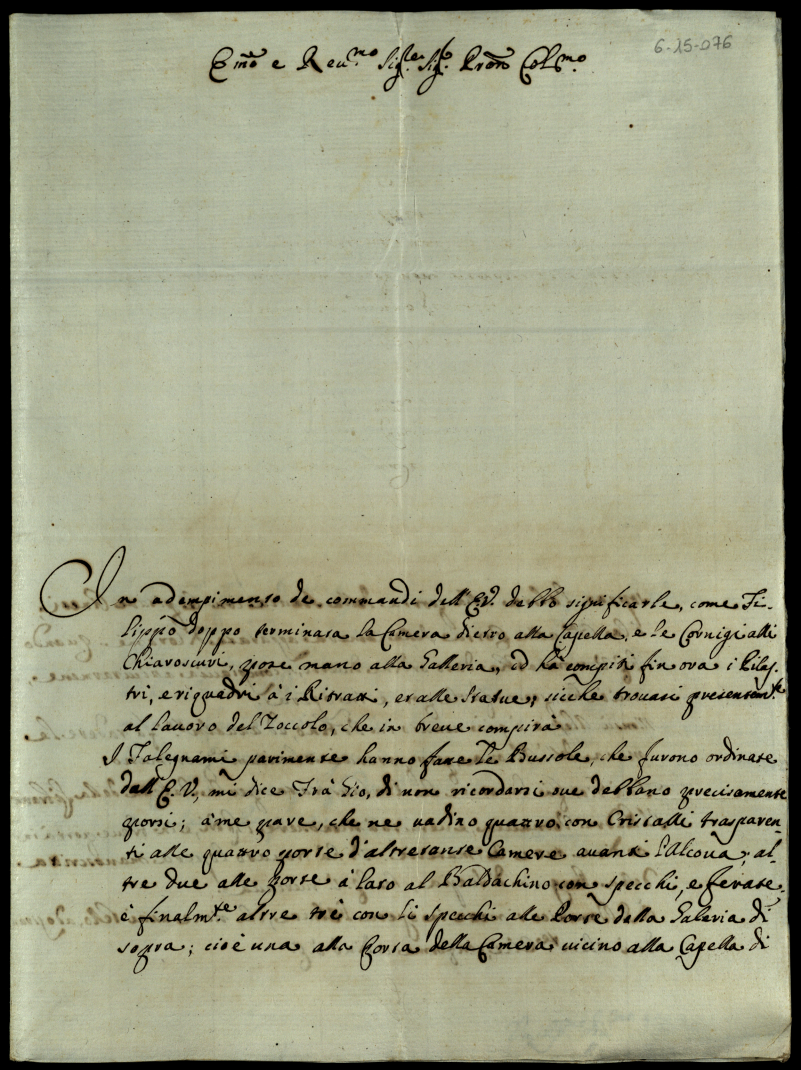 6-25-076
Emo e Reu.mo Sig.re Sig.r Pron Col.mo
In adempimento de commandi dell'E.V. debbo significarle, come Fi-
lippo doppo terminata la Camera dietro alla Capella, e le Cornigi alli
Chiaroscuri, pose mano alla Galleria, ed hà compiti fin ora i Pilas-
tri, e riquadri à i Ritratti, et alle Statue, sicche trovasi presentem.te
al lavoro del Zoccolo, che in breve compirà
I Falegnami parimente hanno fatte le Bussole, che furono ordinate
dall'E.V., mi dice Frà Gio, di non ricordarsi ove debbano precisamente
porsi; à me pare, che ne vadino quattro con Cristalli trasparen-
ti alle quattro porte d'altretante Camere avanti l'Alcova, al-
tre due alle porte à lato al Baldachino con specchi, e ferate
è finalm.te altre trè con li specchi alle Porte della Galeria di
sopra; cioè una alla Porta della Camera vicino alla Capella di